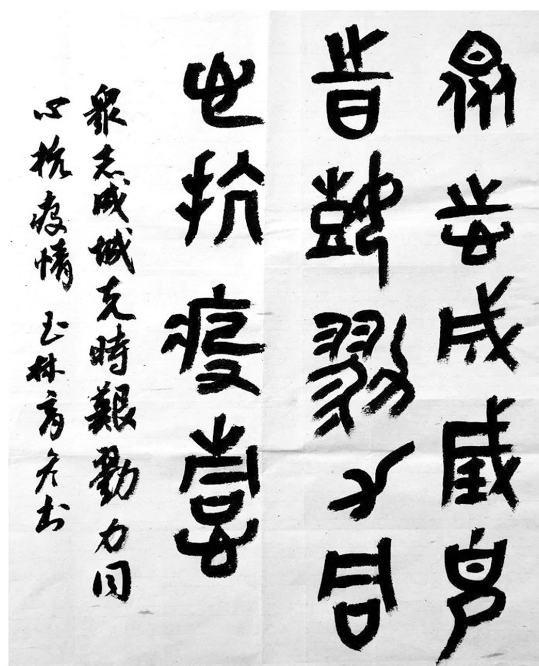 衆志成城克
時艱勠力同
心抗疫情
衆志成城克時艱勠力同
心抗疫情 玉林书